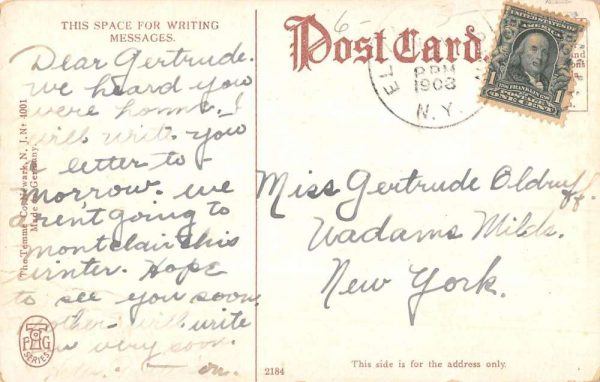 THIS SPACE FOR WRITING
MESSAGES.
Dear Gertrude.
we heard you
were home. I
will write you
a letter to
morrow. we
aren't going to
montclair this
winter. Hope
to see you soon.
will write
very soon.
The Temme Co. Newark, N. J. No 4001
Made in Germany.
P G
SERIES
Post Card.
1908
N. Y.
UNITED STATES OF
AMERICA
1 1
ONE CENT
Miss Gertrude Oldruff.
Wadams Mills.
New York.
2184
This side is for the address only.